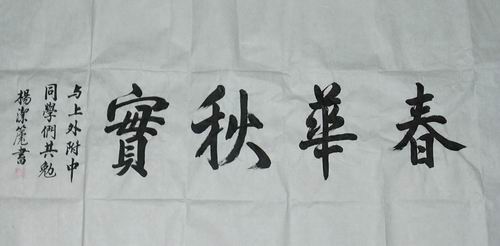 春華秋實
与上外附中
同學們共勉
楊潔篪書